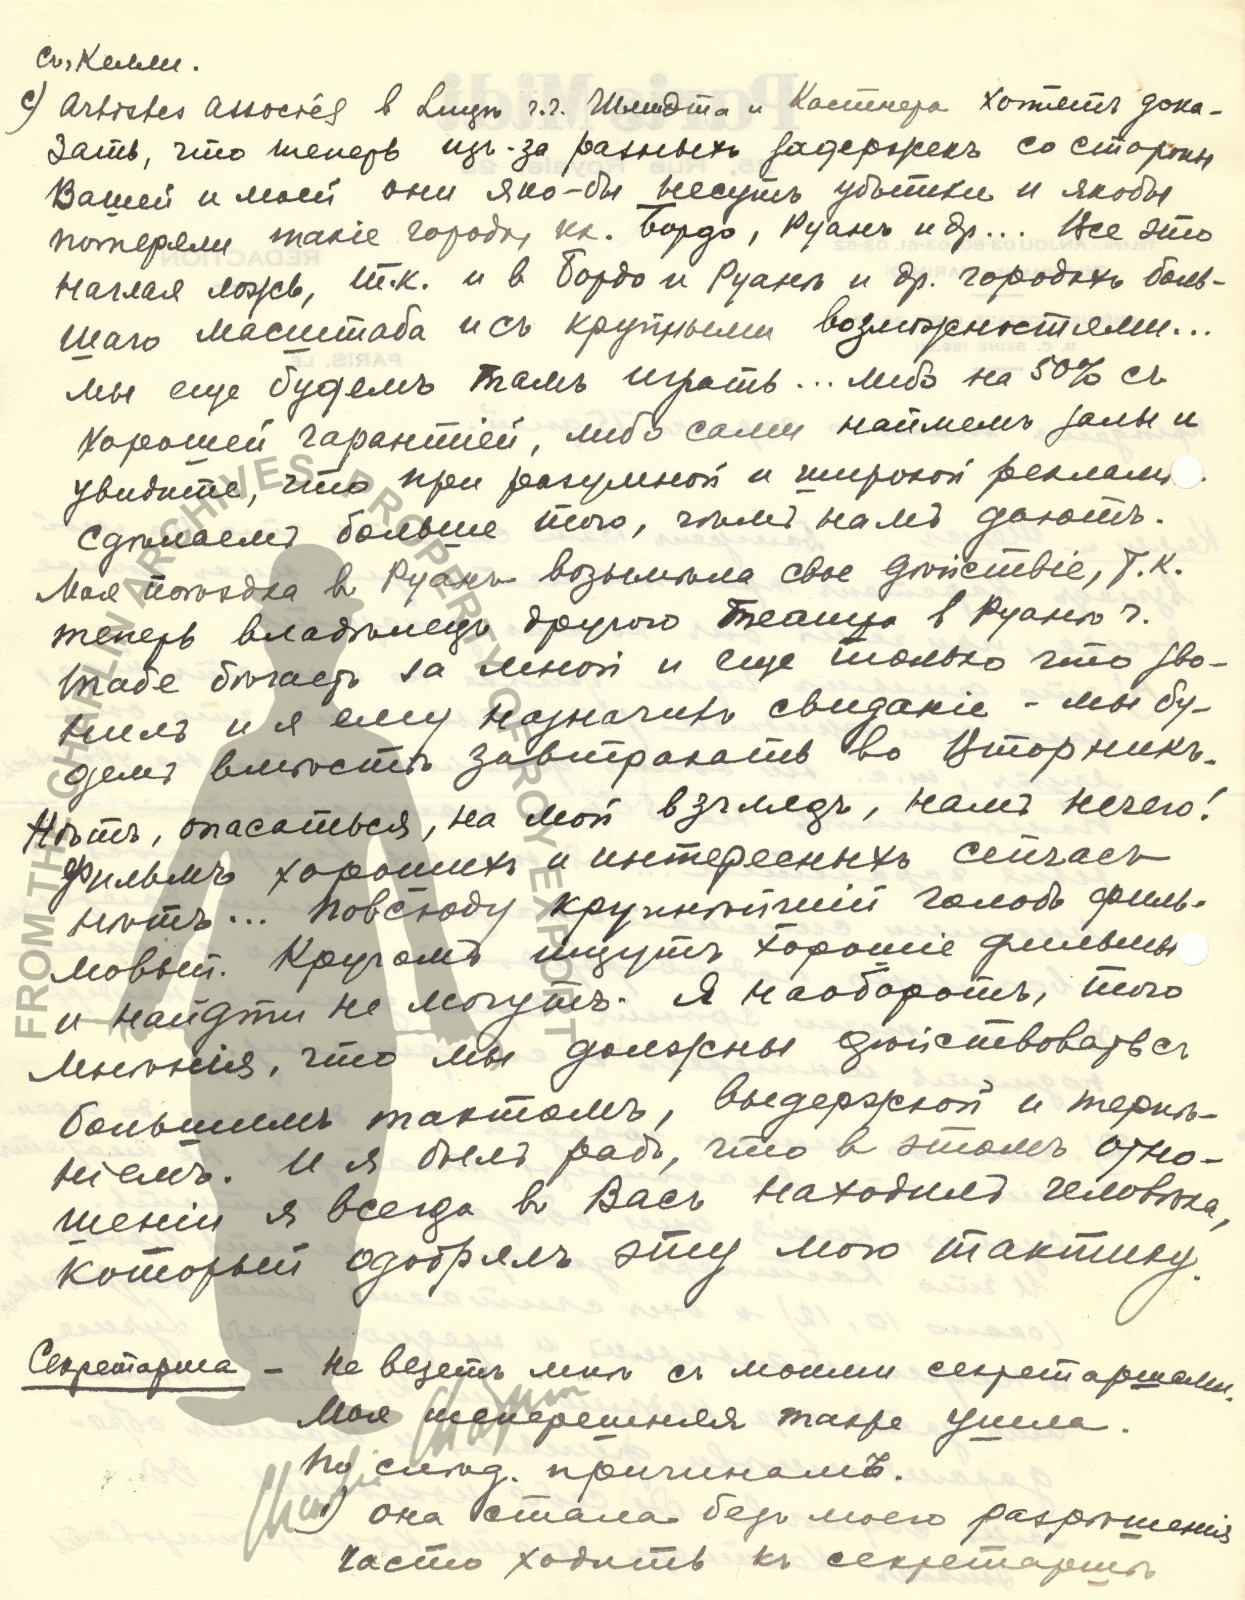 съ Келли.
c) Artistes Associés в лицѣ г.г. Шмидта и Кастнера хотятъ дока-
зать, что теперь изъ-за разныхъ задержекъ со стороны
Вашей и моей они яко-бы несутъ убытки и якобы
потеряли такіе города, кк. Бордо, Руанъ и др... Все это
наглая ложь, т.к. и в Бордо и Руанѣ и др. городахъ боль-
шого масштаба и съ крупными возможностями...
мы еще будемъ тамъ играть... либо на 50% съ
хорошей гарантіей, либо сами наймемъ залы и
увидите, что при разумной и широкой рекламѣ
сдѣлаемъ больше того, чѣмъ намъ даютъ.
Моя поѣздка в Руанъ возымѣла свое дѣйствіе, т.к.
теперь владѣлецъ другого театра в Руанѣ г.
Табе бѣгаетъ за мной и еще только что зво-
нилъ и я ему назначилъ свиданіе - мы бу-
демъ вмѣстѣ завтракать во Вторникъ.
Нѣтъ, опасаться, на мой взглядъ, намъ нечего!
Фильмъ хорошихъ и интересныхъ сейчасъ
нѣтъ... Повсюду крупнѣйшій голодъ филь-
мовый. Кругомъ ищутъ хорошіе фильмы
и найти не могутъ. Я наоборотъ, того
мнѣнія, что мы должны дѣйствовать съ
большимъ тактомъ, выдержкой и терпѣ-
ніемъ. И я былъ радъ, что в этомъ отно-
шеніи я всегда в Васъ находилъ человѣка,
который одобрялъ эту мою тактику.
Секретарша - Не везетъ мнѣ съ моими секретаршами.
Моя теперешняя также ушла.
По слѣд. причинамъ.
1) она стала безъ моего разрѣшенія
часто ходить къ секретаршѣ
FROM THE CHAPLIN ARCHIVES PROPERTY OF ROY EXPORT
Charlie Chaplin
Paris-Midi
25, Rue Royale, 25
RÉDACTION
PARIS, LE